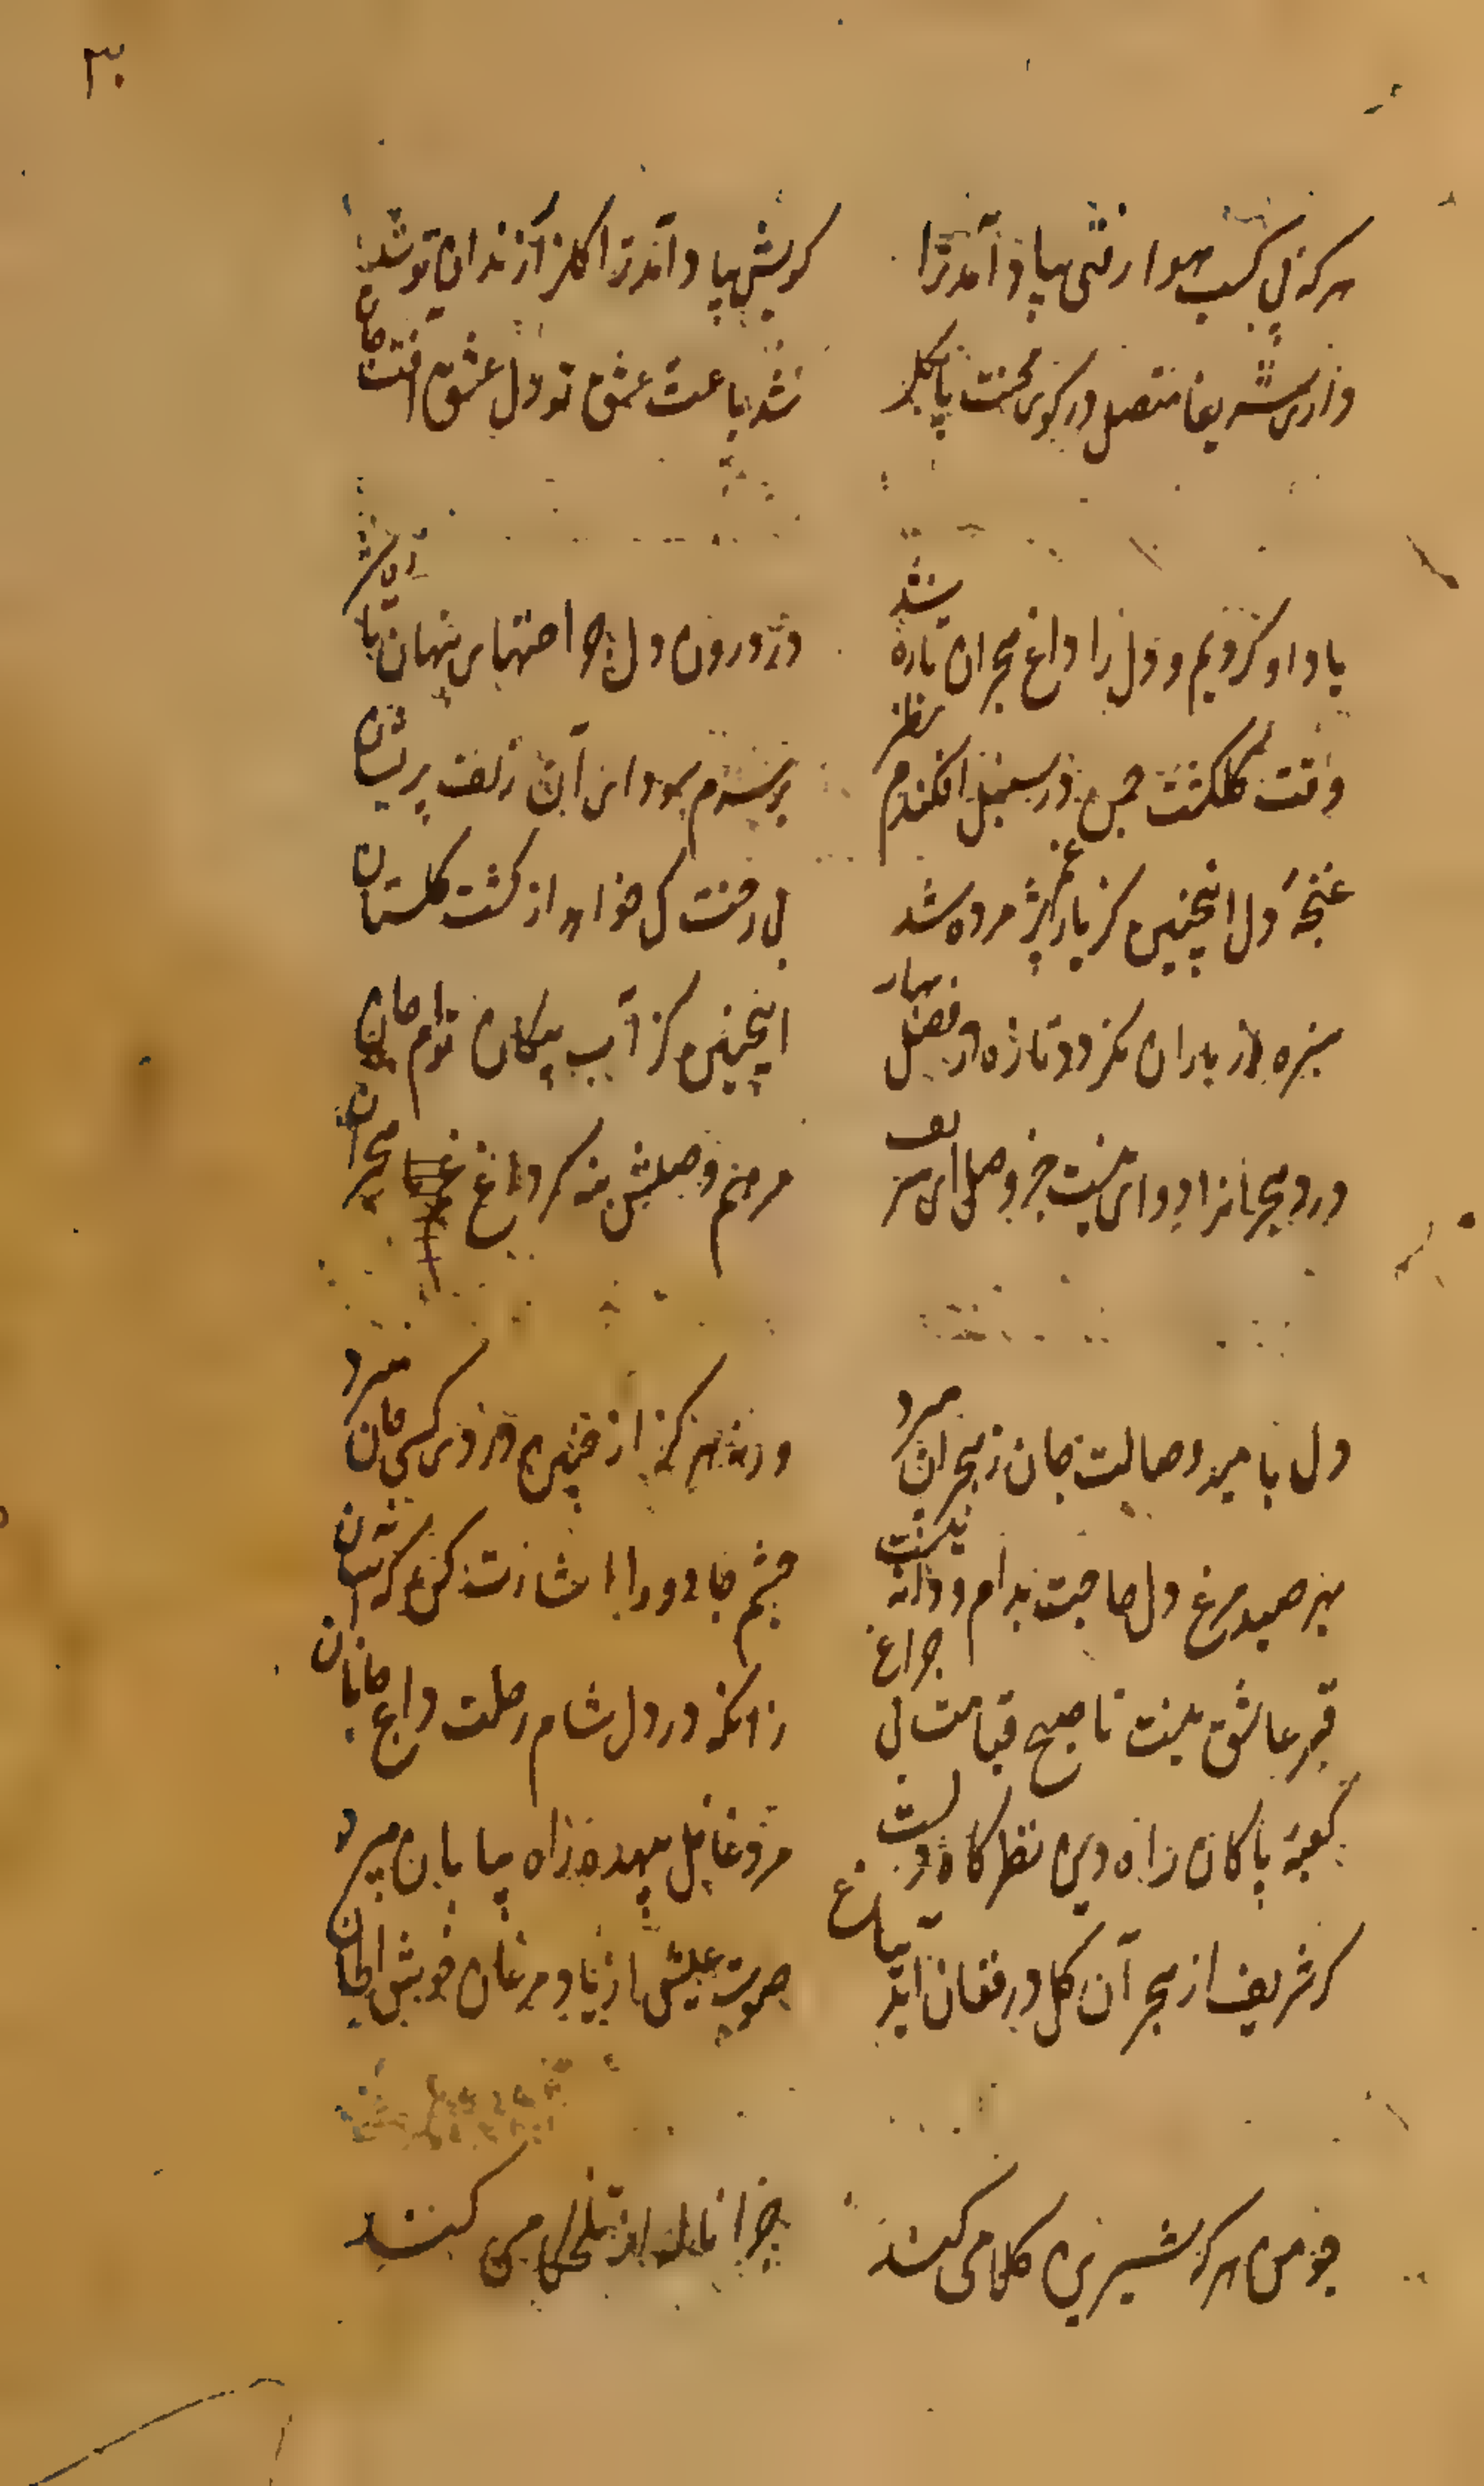 ۳۰
هر که پی کسب هوا رفتی بیاد آمد ترا
کویش بیاد آمد ترا گلزار زندان تو شد
داری شریفا متصل در کوی محنت پا بگل
شد باعث عشق تو دل عشق آفت جان
یاد او کردیم و دل را داغ هجران تازه شد
در درون دل جراحتهای پنهان تازه شد
وقت گلگشت چمن در سنبل افکندم نظر
بر سرم سودای آن زلف پریشان
غنچهٔ دل اینچنین کز یاد غم پژمرده شد
کی خواهد از گشت گلستان
سبزه از باران نگردد تازه در فصل بهار
اینچنین کز آب پیکان توام جان
درد هجرانرا دوای نیست جز وصل ای شریف
مرهم وصلش نه که داغ هجران
دل بامید وصالت جان ز هجران میبرد
ورنه هرگز از چنین دردی کسی جان میبرد
بهر صید مرغ دل حاجت بدام و دانه نیست
چشم جادو را اشارت کن که آسان
قبر عاشق نیست تا صبح قیامت بی چراغ
زانکه در دل شام رحلت داغ جانان
کعبهٔ پاکان راه دین نظرگاه دلست
مرد غافل بیهده راه بیابان میبرد
گر شریف از هجر آن گل در فغان آید بباغ
صوت عیش از یاد مرغان خوش الحان
چو من هر کو شیرین کلامی کند
چرا ناله از تلخکامی کند